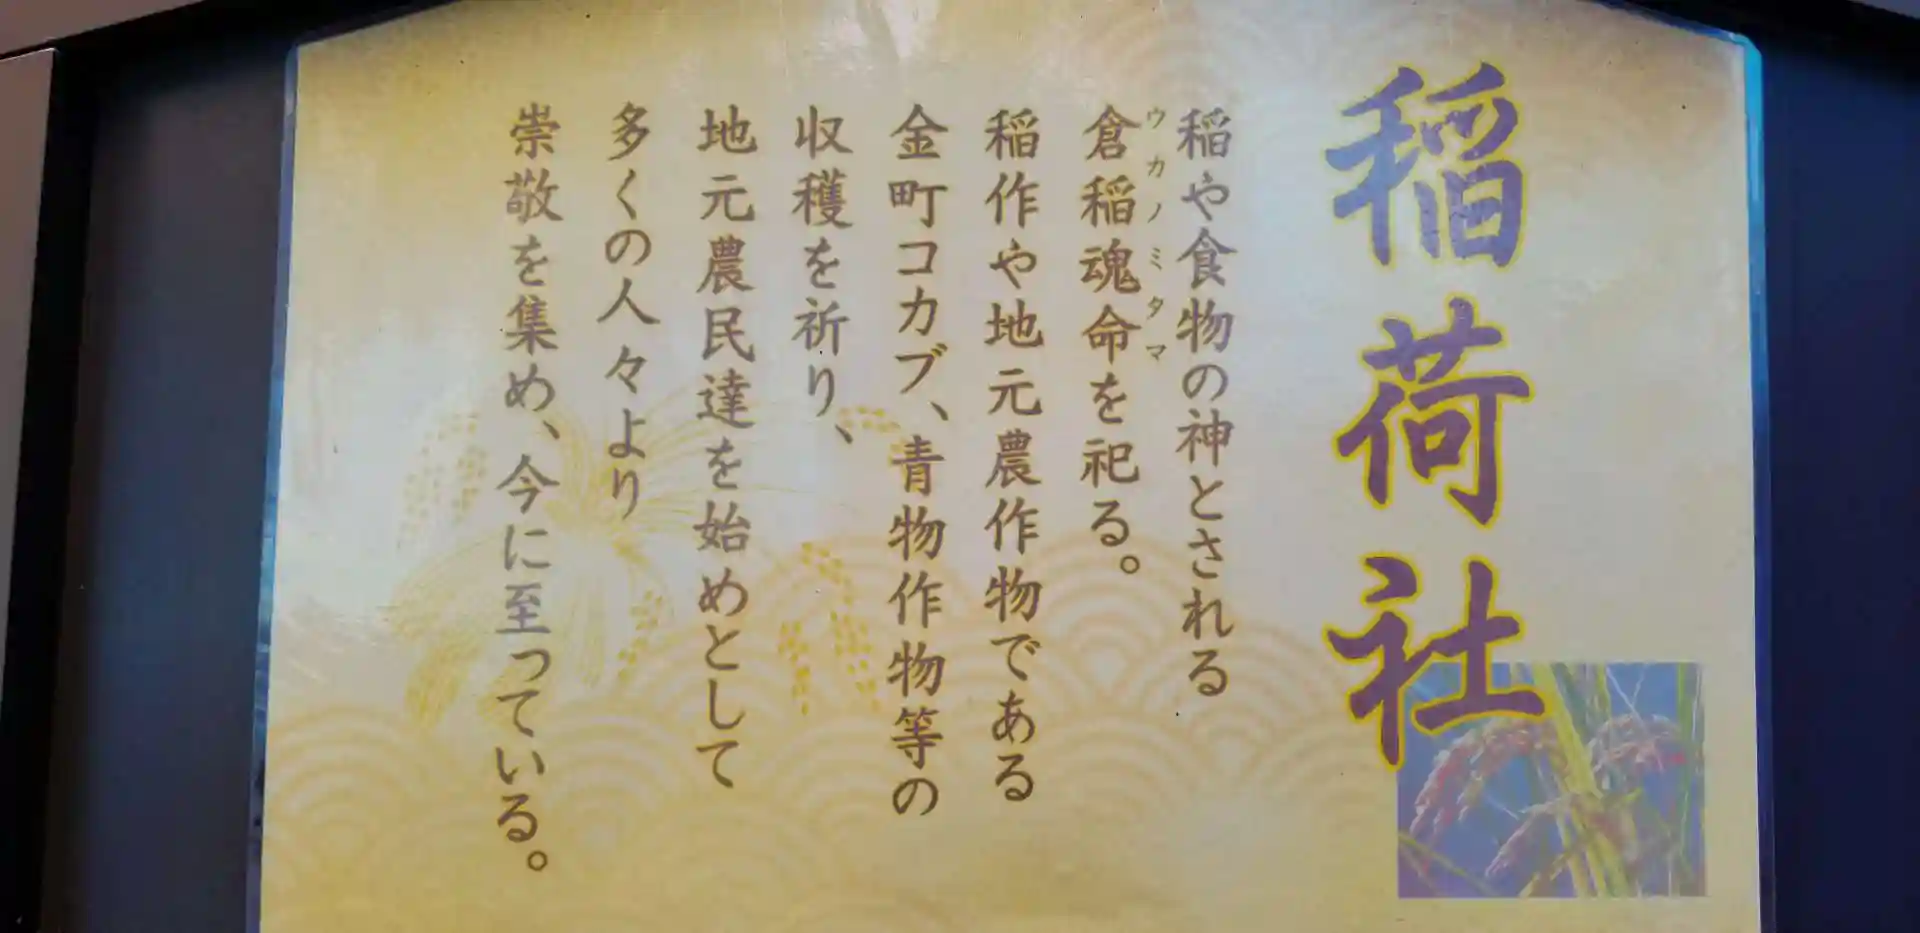 稲荷社
稲や食物の神とされる
倉稲魂命を祀る。
ウカノミタマ
稲作や地元農作物である
金町コカブ、青物作物等の
収穫を祈り、
地元農民達を始めとして
多くの人々より
崇敬を集め、今に至っている。